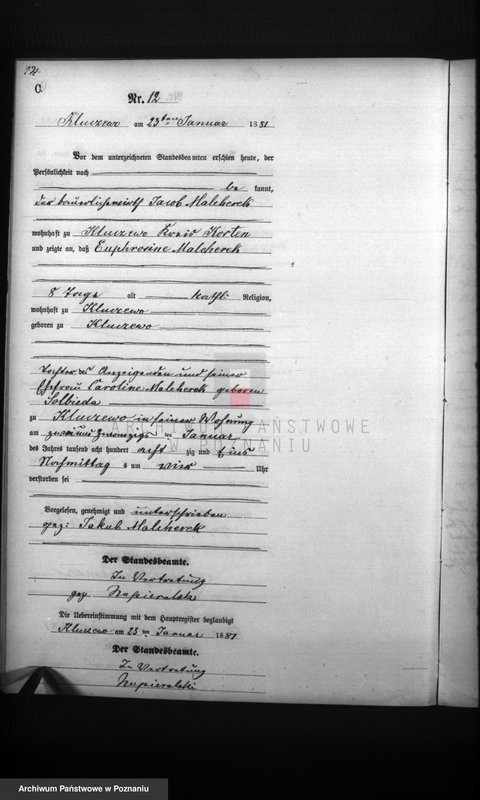 12.
C.
Nr. 12
Kluczewo am 23ten Januar 1881
Vor dem unterzeichneten Standesbeamten erschien heute, der
Persönlichkeit nach
be kannt,
der bäuerliche Wirth Jacob Malcherek
wohnhaft zu Kluczewo Kreis Kosten
und zeigte an, daß Euphrosine Malcherek
8 Tage alt kathl: Religion,
wohnhaft zu Kluczewo
geboren zu Kluczewo
Tochter des Anzeigenden und seiner
Ehefrau Caroline Malcherek geboren
zu Kluczewo in seiner Wohnung
am zwei und zwanzigsten Januar
des Jahres tausend acht hundert acht zig und Eins
Nachmittag s um vier Uhr
verstorben sei
Vorgelesen, genehmigt und unterschrieben
gez: Jakub Malcherek
Der Standesbeamte.
In Vertretung
gez. Napieralski
Die Uebereinstimmung mit dem Hauptregister beglaubigt
Kluczewo am 23 ten Januar 1881
Der Standesbeamte.
In Vertretung
Napieralski
ARCHIWUM PAŃSTWOWE
W POZNANIU
Archiwum Państwowe w Poznaniu